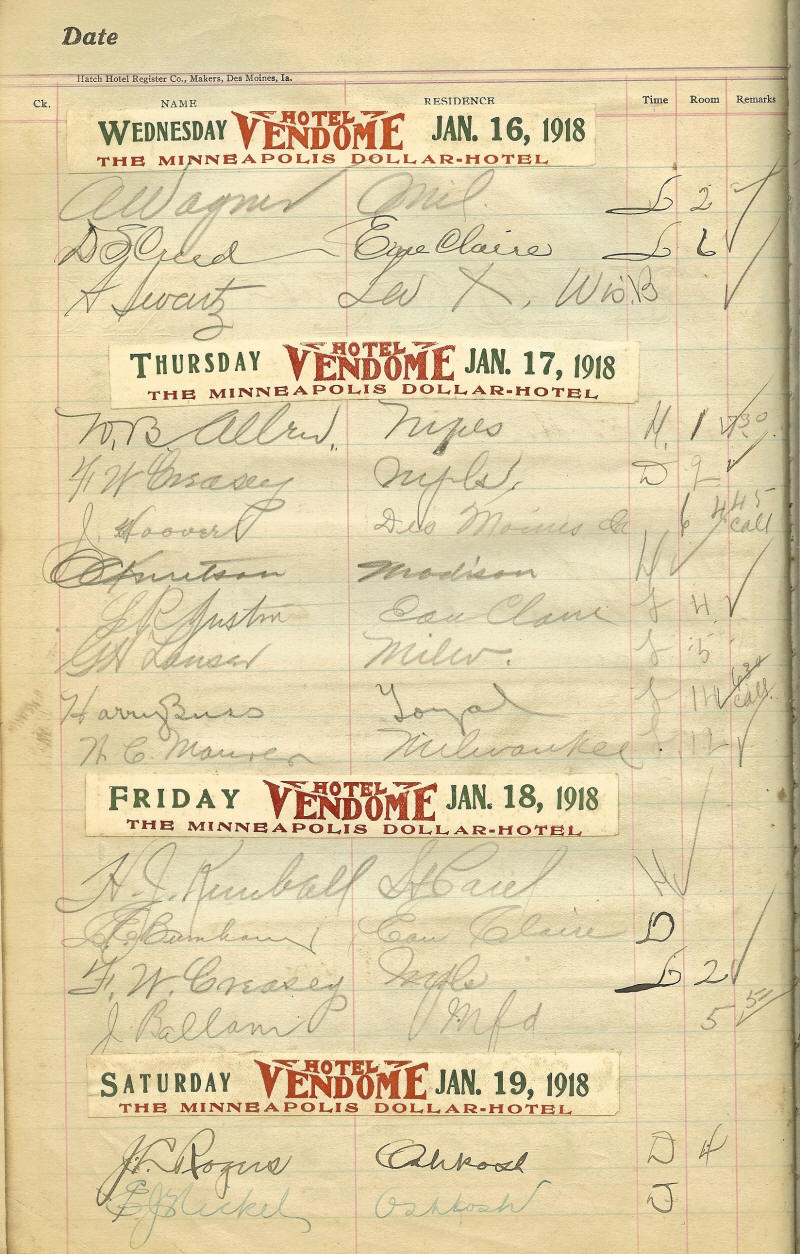 Date
Hatch Hotel Register Co., Makers, Des Moines, Ia.
Ck. NAME RESIDENCE Time Room Remarks
WEDNESDAY HOTEL VENDOME JAN. 16, 1918
THE MINNEAPOLIS DOLLAR-HOTEL
A Wagner Mil. L 2 ✓
D S Creed Eau Claire L 6 ✓
A Swartz La X, Wis. B ✓
THURSDAY HOTEL VENDOME JAN. 17, 1918
THE MINNEAPOLIS DOLLAR-HOTEL
W. B. Allen, Mpls H. 1 7:30 ✓
F W Creasey Mpls. D 2 ✓
J. Hoover Des Moines Ia 6 4 4 45 call
Knutson Madison H ✓
Justin Eau Claire 4 ✓
Lanser Milw. 5
Harry Buss Loyal 14 ✓ 6 30 call.
H. C. Maurer Milwaukee. 12 ✓
FRIDAY HOTEL VENDOME JAN. 18, 1918
THE MINNEAPOLIS DOLLAR-HOTEL
H. J. Kimball St Paul H ✓
Burnham Eau Claire D
F. W. Creasey Mpls L 2 ✓
J Ballam Mfd 5 ✓
SATURDAY HOTEL VENDOME JAN. 19, 1918
THE MINNEAPOLIS DOLLAR-HOTEL
Rogers Oshkosh D 4
E J Nickel Oshkosh D